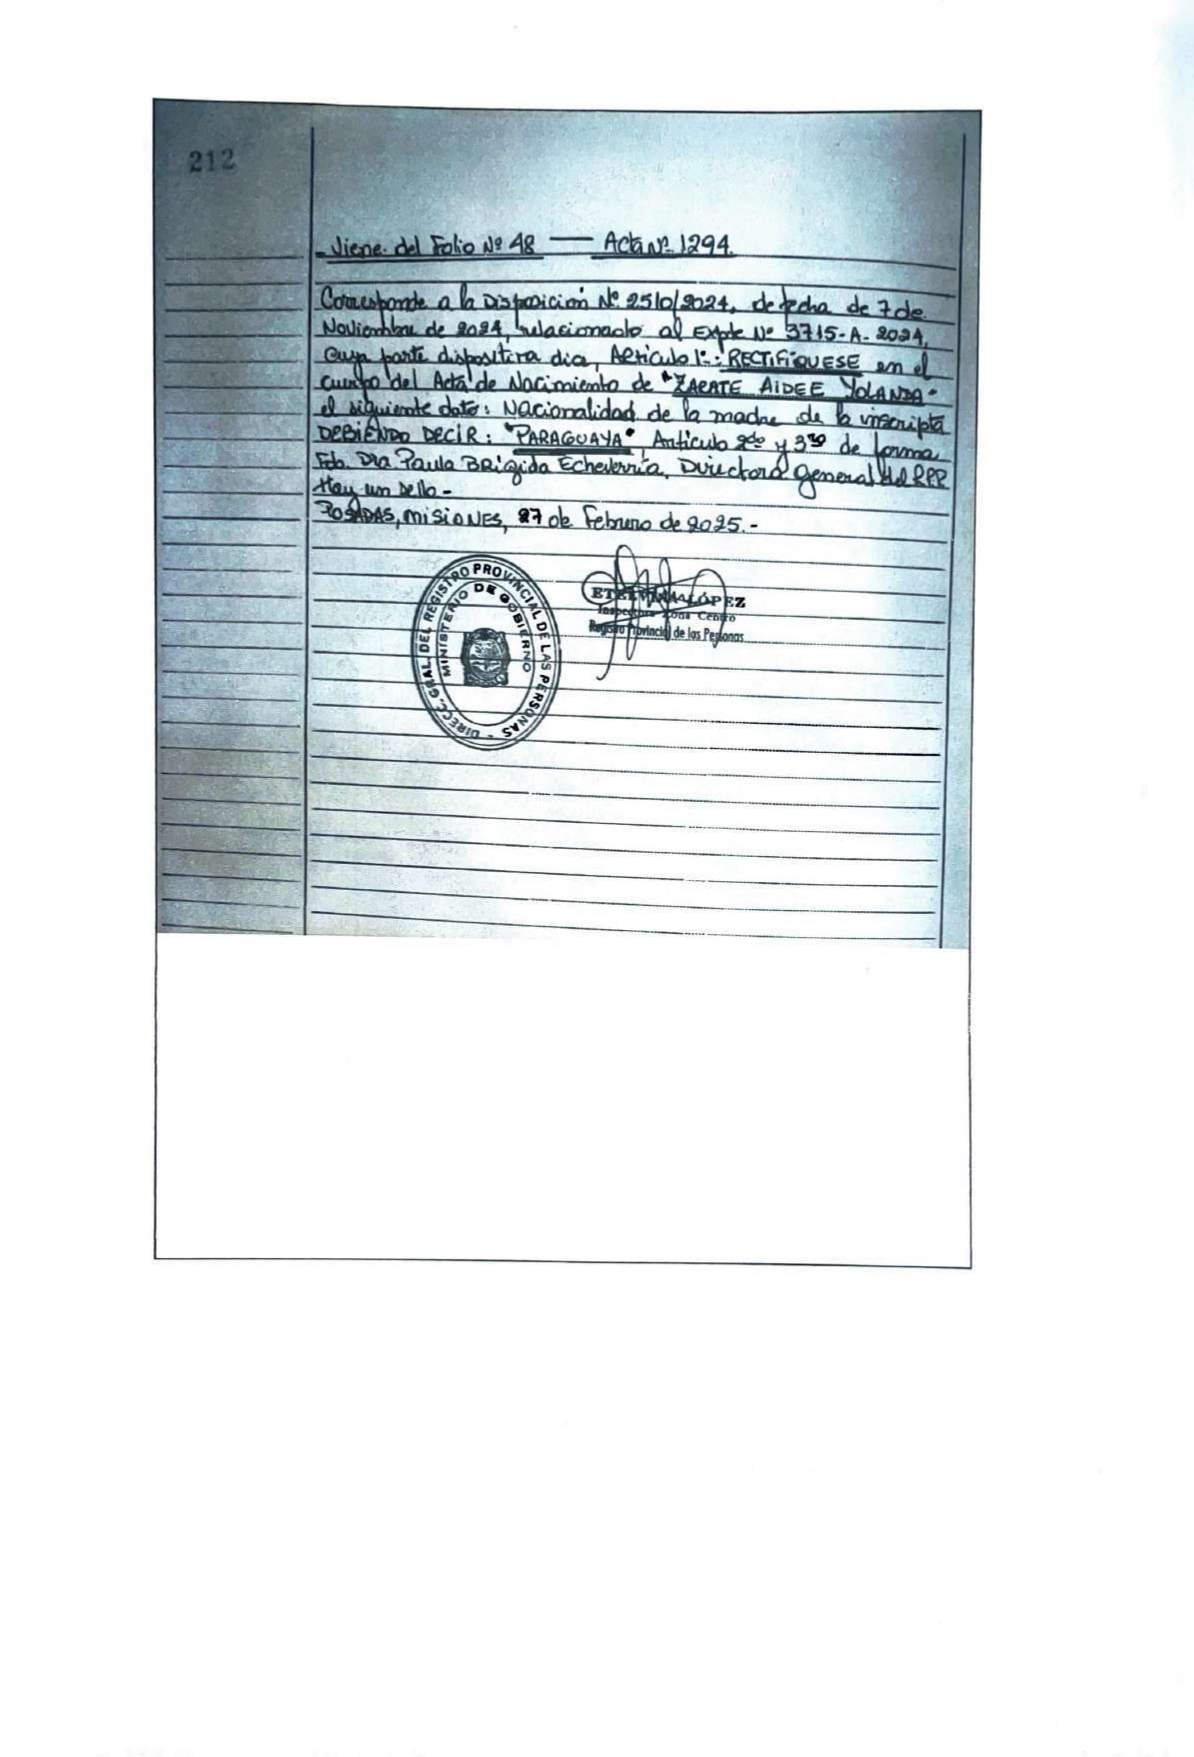 212
Viene del Folio Nº 48 — Acta Nº 1294.
Corresponde a la Disposición Nº 2510/2024, de fecha de 7 de
Noviembre de 2024, relacionado al Expte Nº 3715-A-2024,
cuya parte dispositiva dice, Articulo 1º: RECTIFIQUESE en el
cuerpo del Acta de Nacimiento de "ZARATE AIDEE YOLANDA"
el siguiente dato: Nacionalidad de la madre de la inscripta
DEBIENDO DECIR: "PARAGUAYA" Articulo 2do y 3ro de forma
Fdo. Dra Paula BRigida Echeverría, Directora General del RPP
Hay un sello-
POSADAS, MISIONES, 27 de Febrero de 2025.-
DIRECC. GRAL. DEL REGISTRO PROVINCIAL DE LAS PERSONAS -
MINISTERIO DE GOBIERNO
LÓPEZ
Inspectora Zona Centro
Registro Provincial de las Personas